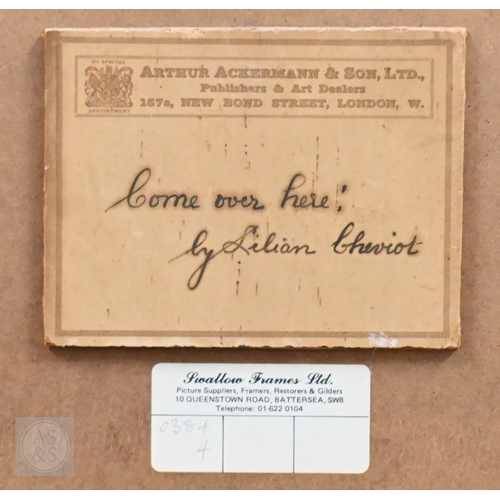 BY SPECIAL
APPOINTMENT
ARTHUR ACKERMANN & SON, LTD.,
Publishers & Art Dealers
157a, NEW BOND STREET, LONDON, W.
Come over here!
by Lilian Cheviot
Swallow Frames Ltd.
Picture Suppliers, Framers, Restorers & Gilders
10 QUEENSTOWN ROAD, BATTERSEA, SW8
Telephone: 01-622 0104
0384
4
AS
&S